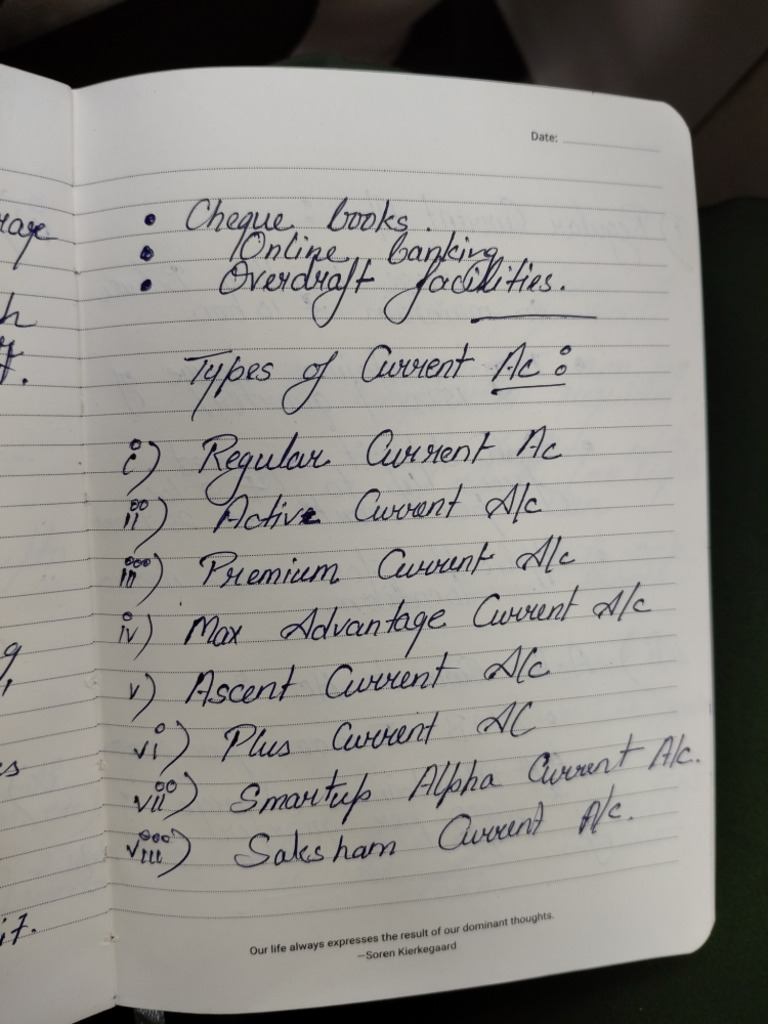 Date:
• Cheque books.
• Online banking
• Overdraft facilities.
Types of Current Ac :
i) Regular Current Ac
ii) Active Current A/c
iii) Premium Current A/c
iv) Max Advantage Current A/c
v) Ascent Current A/c
vi) Plus Current AC
vii) Smartup Alpha Current A/c.
viii) Saksham Current A/c.
Our life always expresses the result of our dominant thoughts.
—Soren Kierkegaard